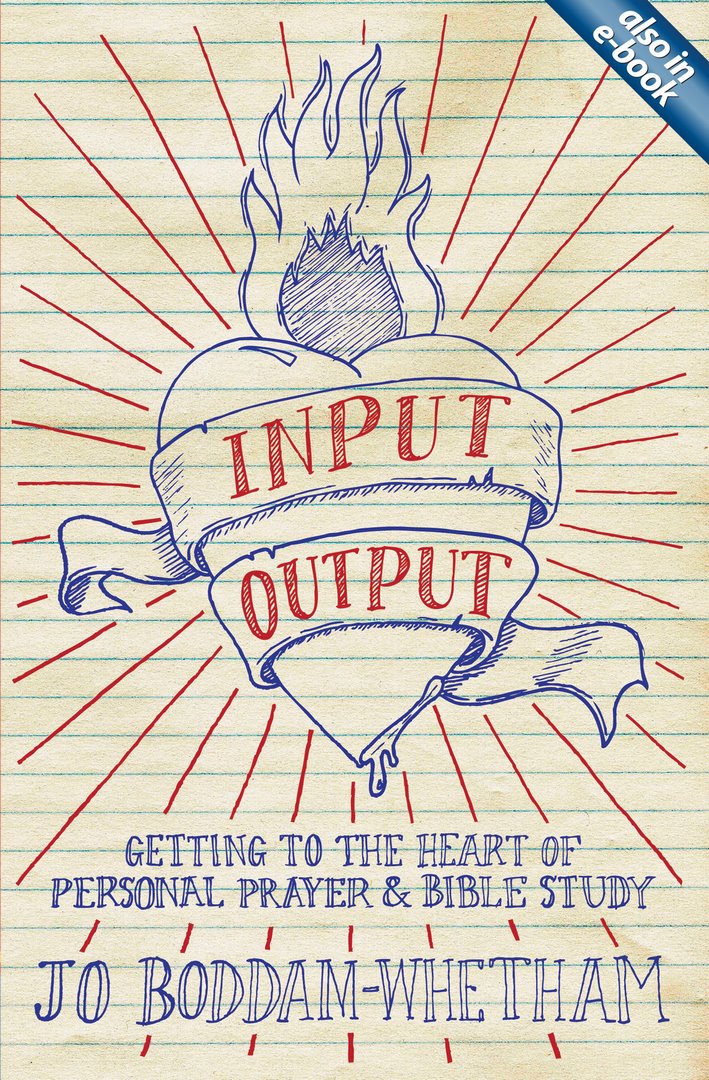 also in
e-book
INPUT
OUTPUT
GETTING TO THE HEART OF
PERSONAL PRAYER & BIBLE STUDY
JO BODDAM-WHETHAM